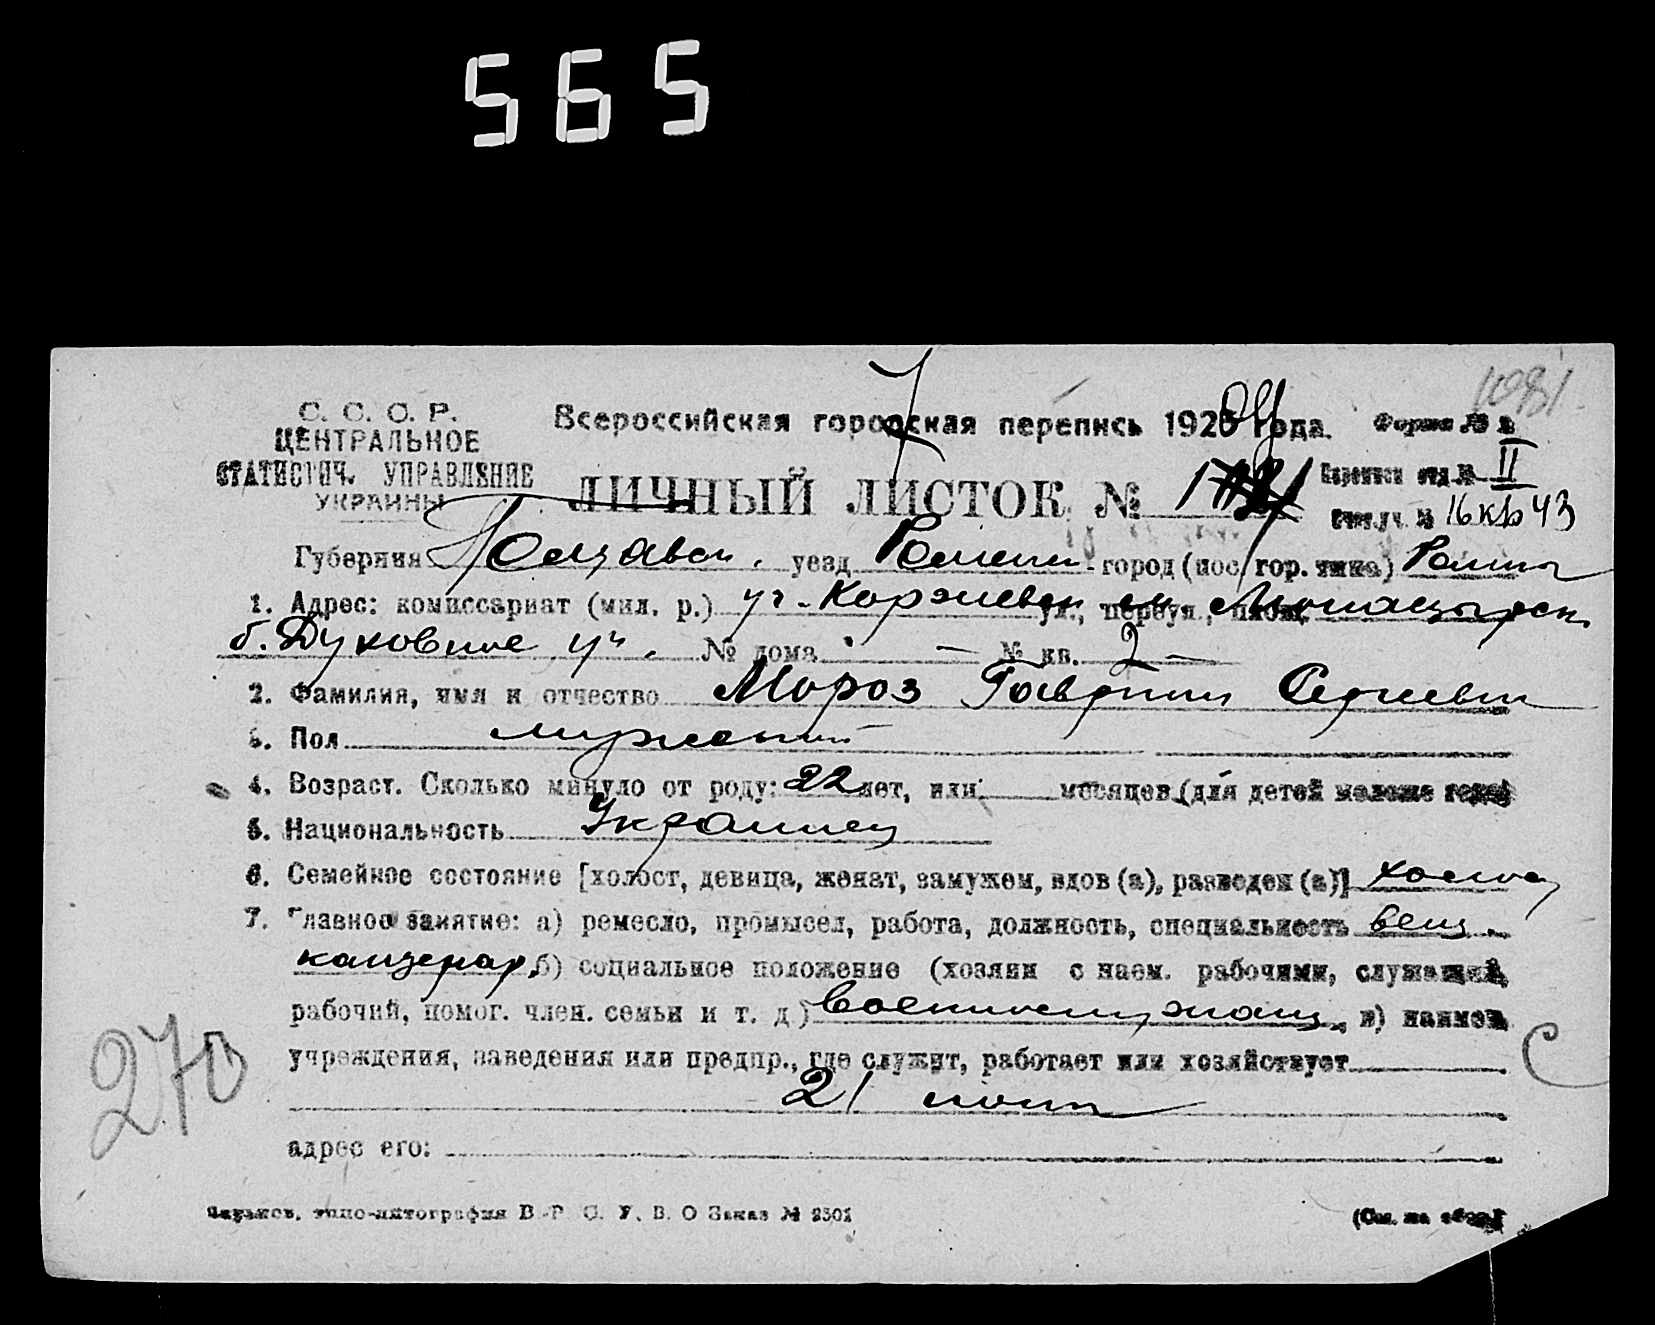 565
1081
С. С. С. Р.
ЦЕНТРАЛЬНОЕ
СТАТИСТИЧ. УПРАВЛЕНИЕ
УКРАИНЫ
Всероссийская городская перепись 1920 года.
Форма №
ЛИЧНЫЙ ЛИСТОК №
отд. № II
№ 16 кв 43
Губерния Полтавск. уезд Роменск. город (пос. гор. типа) Ромны
1. Адрес: комиссариат (мил. р.) уг. Коржевск ул., переул., площ. Монастырск.
б. Духовное уч. № дома — № кв. 2 —
2. Фамилия, имя и отчество Мороз Гавриил Сергеевич
3. Пол мужской
4. Возраст. Сколько минуло от роду: 22 лет, или месяцев (для детей моложе года)
5. Национальность Украинец
6. Семейное состояние [холост, девица, женат, замужем, вдов (а), разведен (а)] холост
7. Главное занятие: а) ремесло, промысел, работа, должность, специальность вещ.
каптенар, б) социальное положение (хозяин с наем. рабочими, служащий,
рабочий, помог. член. семьи и т. д.) военнослужащ., в) наимен.
учреждения, заведения или предпр., где служит, работает или хозяйствует
21
адрес его:
270
С
Харьков, типо-литография В. Р. С. У. В. О Заказ № 2301
(См. на обор.)